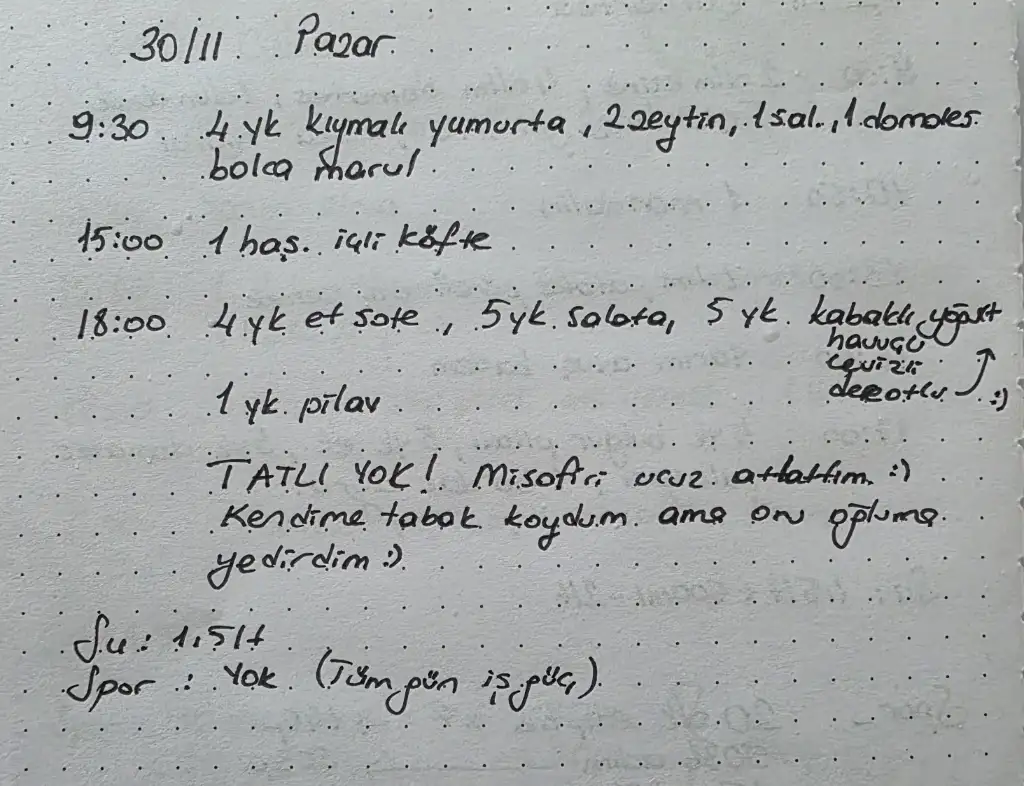 30/11 Pazar
9:30 4 yk kıymalı yumurta, 2 zeytin, 1 sal., 1 domates
bolca marul
15:00 1 haş. içli köfte
18:00 4 yk et sote, 5 yk. salata, 5 yk. kabaklı yoğurt
havuçlu
cevizli
dereotlu :)
1 yk. pilav
TATLI YOK! Misafiri ucuz atlattım :)
Kendime tabak koydum ama onu oğluma
yedirdim :)
Su: 1,5 lt
Spor: Yok (Tüm gün iş güç)